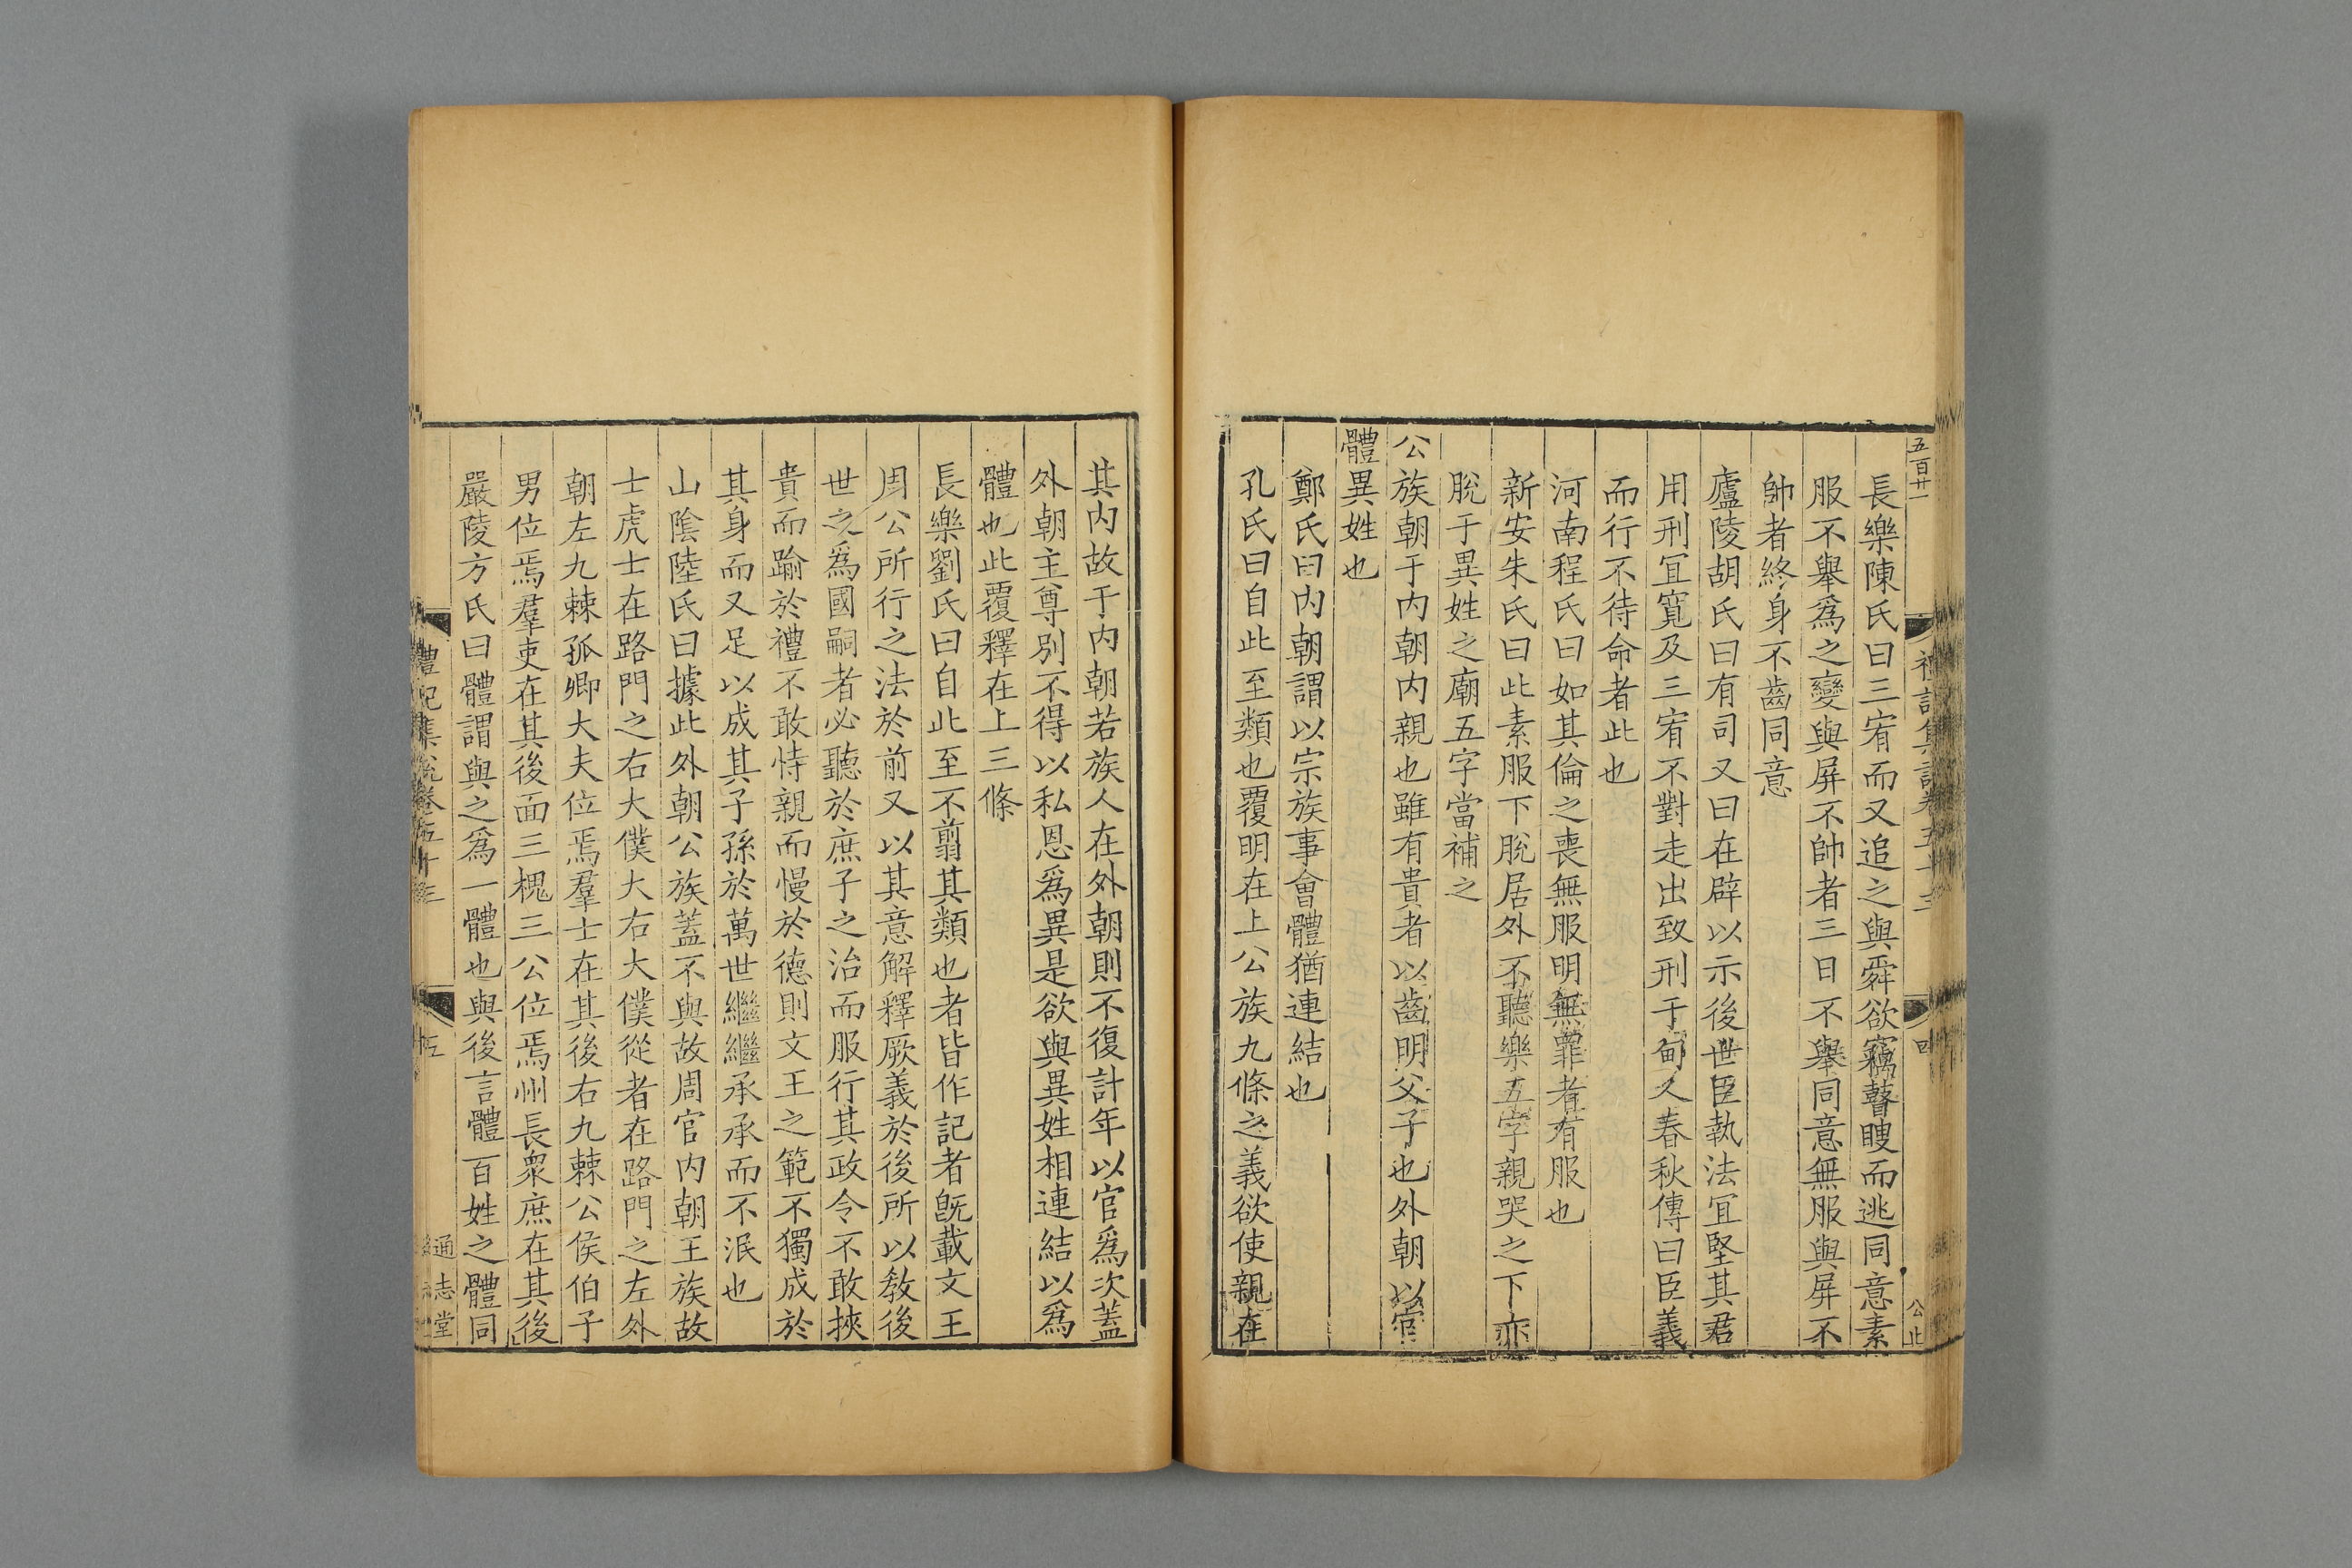 五百廿一
長樂陳氏曰三宥而又追之與舜欲竊瞽瞍而逃同意素
服不舉爲之變與屏不帥者三日不舉同意無服與屏不
帥者終身不齒同意
廬陵胡氏曰有司又曰在辟以示後世臣執法宜堅其君
用刑宜寬及三宥不對走出致刑于甸人春秋傳曰臣義
而行不待命者此也
河南程氏曰如其倫之喪無服明無罪者有服也
新安朱氏曰此素服下脫居外不聽樂五字親哭之下亦
脫于異姓之廟五字當補之
公族朝于內朝內親也雖有貴者以齒明父子也外朝以官
體異姓也
鄭氏曰內朝謂以宗族事會體猶連結也
孔氏曰自此至類也覆明在上公族九條之義欲使親在
其內故于內朝若族人在外朝則不復計年以官爲次蓋
外朝主尊別不得以私恩爲異是欲與異姓相連結以爲
體也此覆釋在上三條
長樂劉氏曰自此至不翦其類也者皆作記者旣載文王
周公所行之法於前又以其意解釋厥義於後所以敎後
世之爲國嗣者必聽於庶子之治而服行其政令不敢挾
貴而踰於禮不敢恃親而慢於德則文王之範不獨成於
其身而又足以成其子孫於萬世繼繼承承而不泯也
山陰陸氏曰據此外朝公族蓋不與故周官內朝王族故
士虎士在路門之右大僕大右大僕從者在路門之左外
朝左九棘孤卿大夫位焉羣士在其後右九棘公侯伯子
男位焉羣吏在其後面三槐三公位焉州長衆庶在其後
嚴陵方氏曰體謂與之爲一體也與後言體百姓之體同
禮記集說卷五十三
通志堂